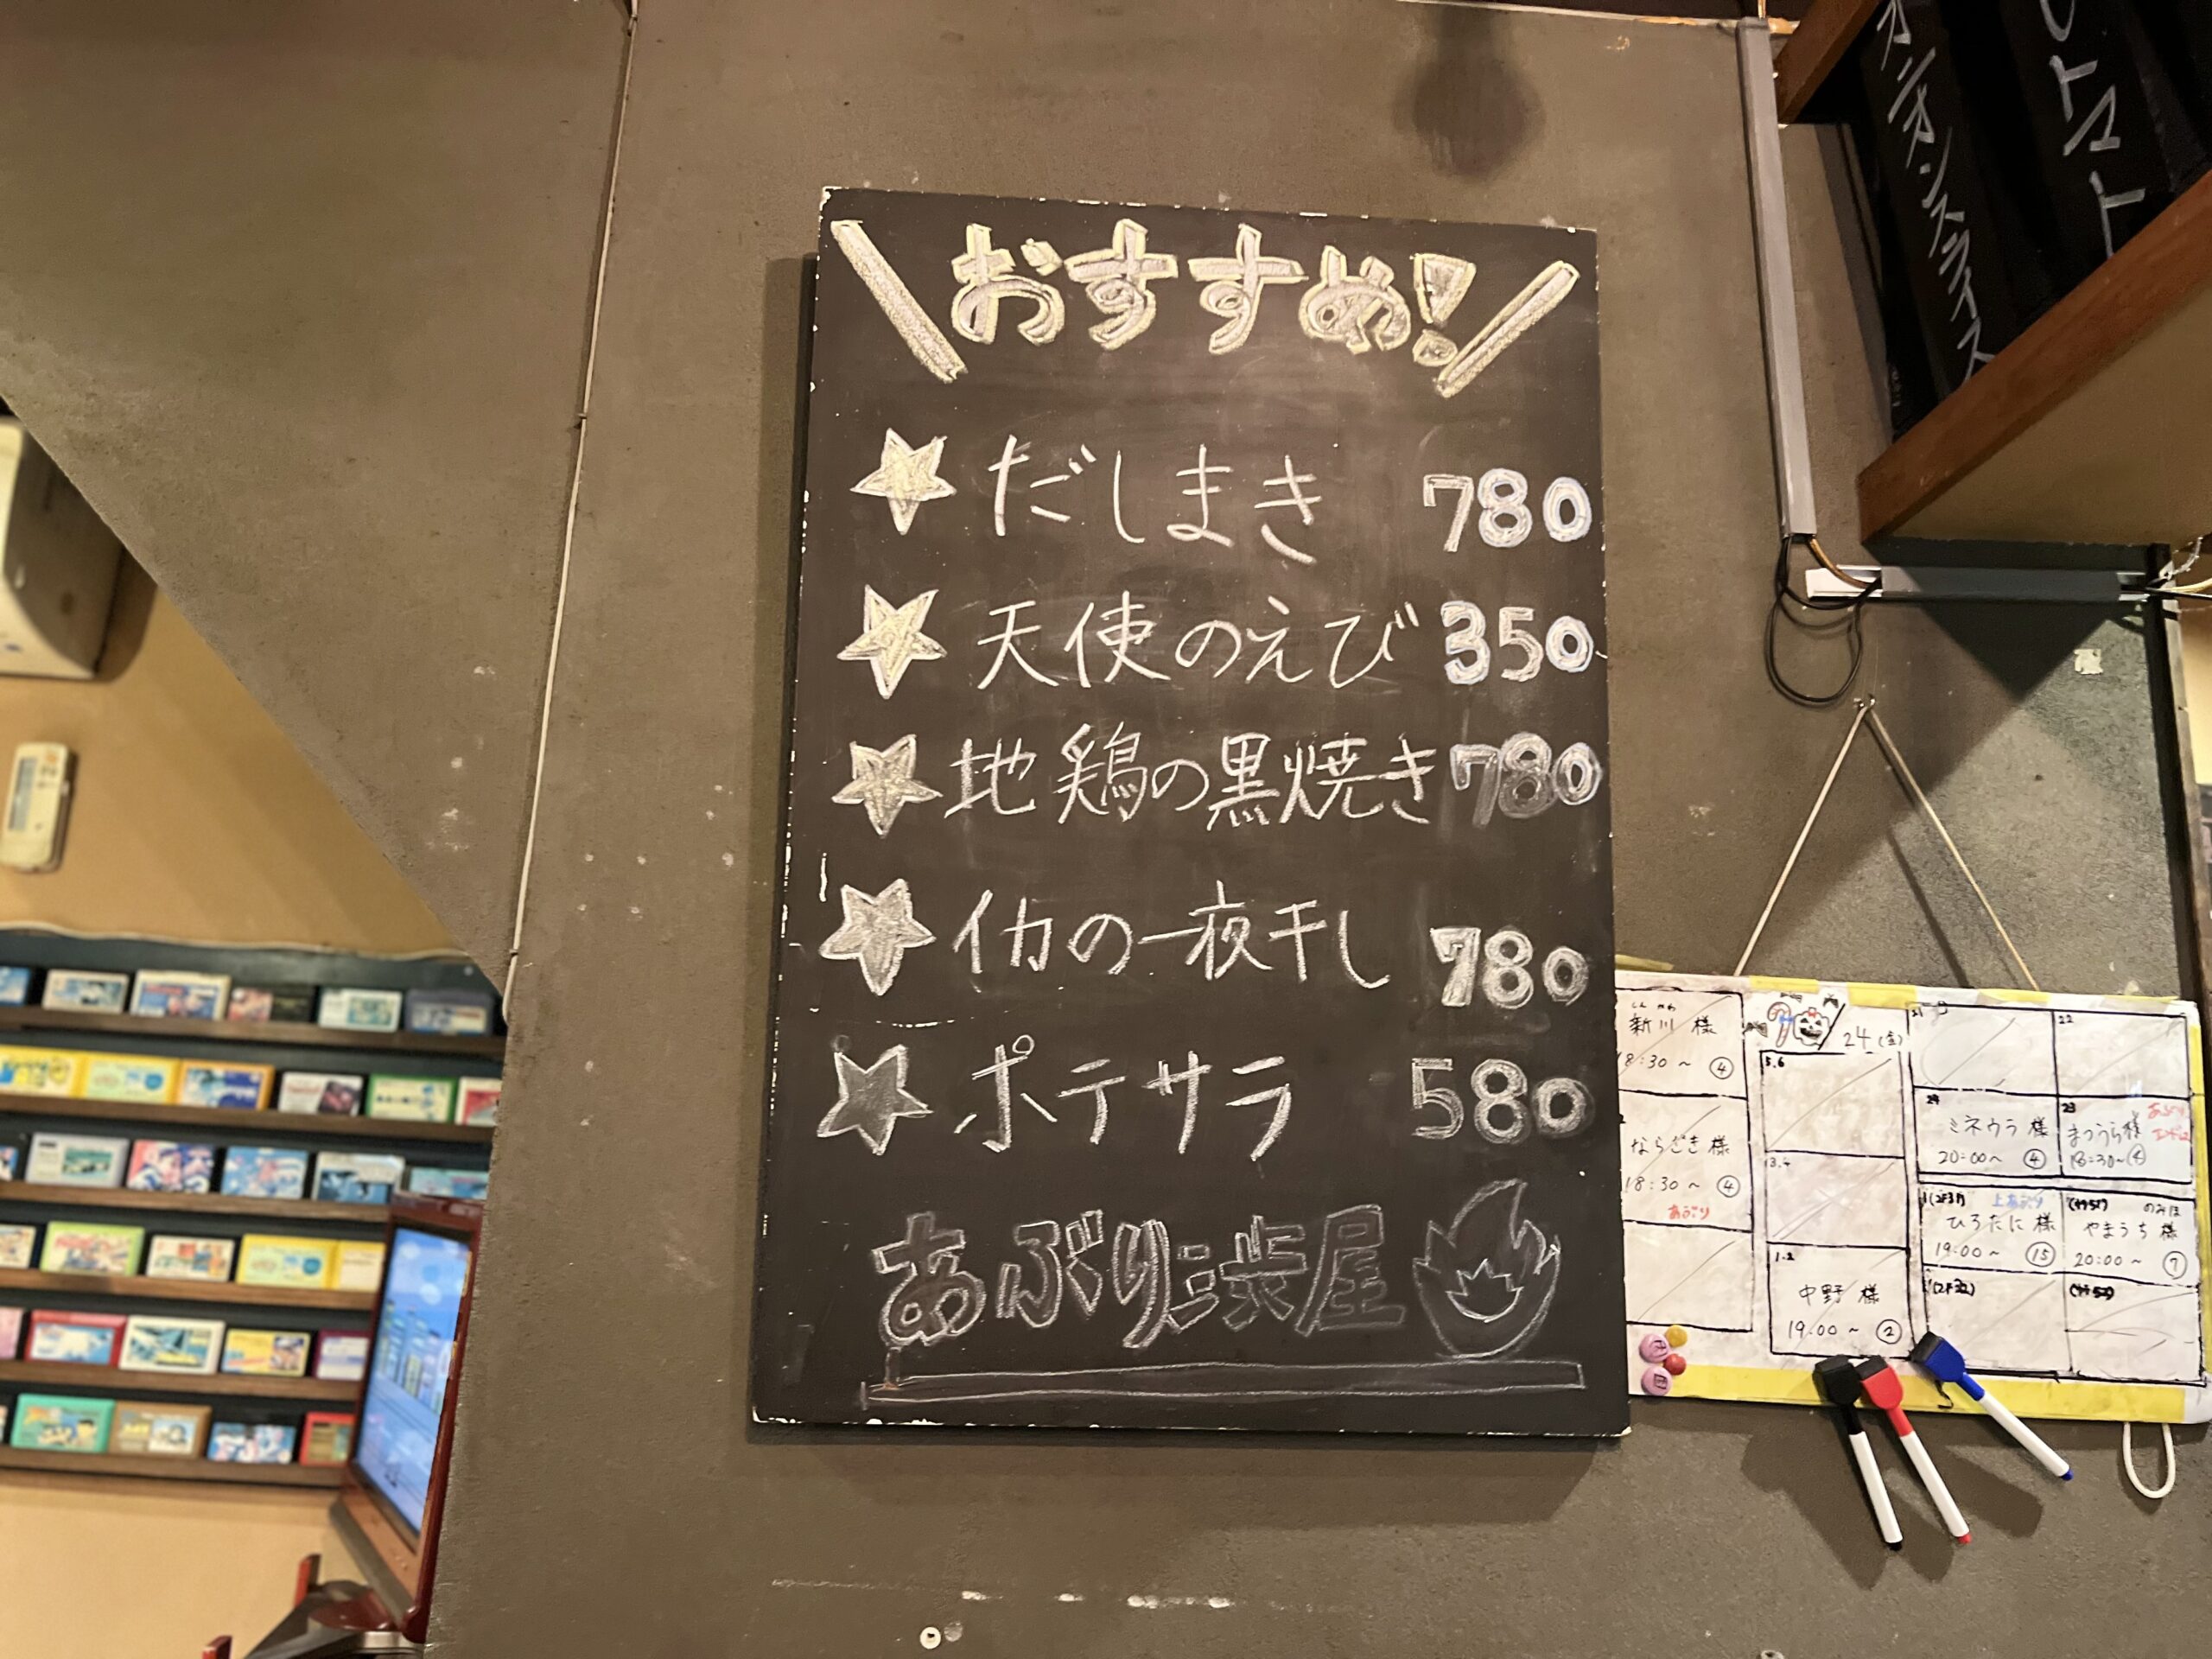 おすすめ!
だしまき 780
天使のえび 350
地鶏の黒焼き 780
イカの一夜干し 780
ポテサラ 580
あぶり渋屋
オニオンスライス
トマト
新川 様
18:30～ ④
ならざき 様
18:30～ ④
あぶり
24(金)
5.6
3.4
1.2
中野 様
19:00～ ②
21
22
24
ミネウラ 様
20:00～ ④
23
まつうら様
18:30～④
上あぶり
ひろたに 様
19:00～ ⑮
のみほ
やまうち 様
20:00～ ⑦